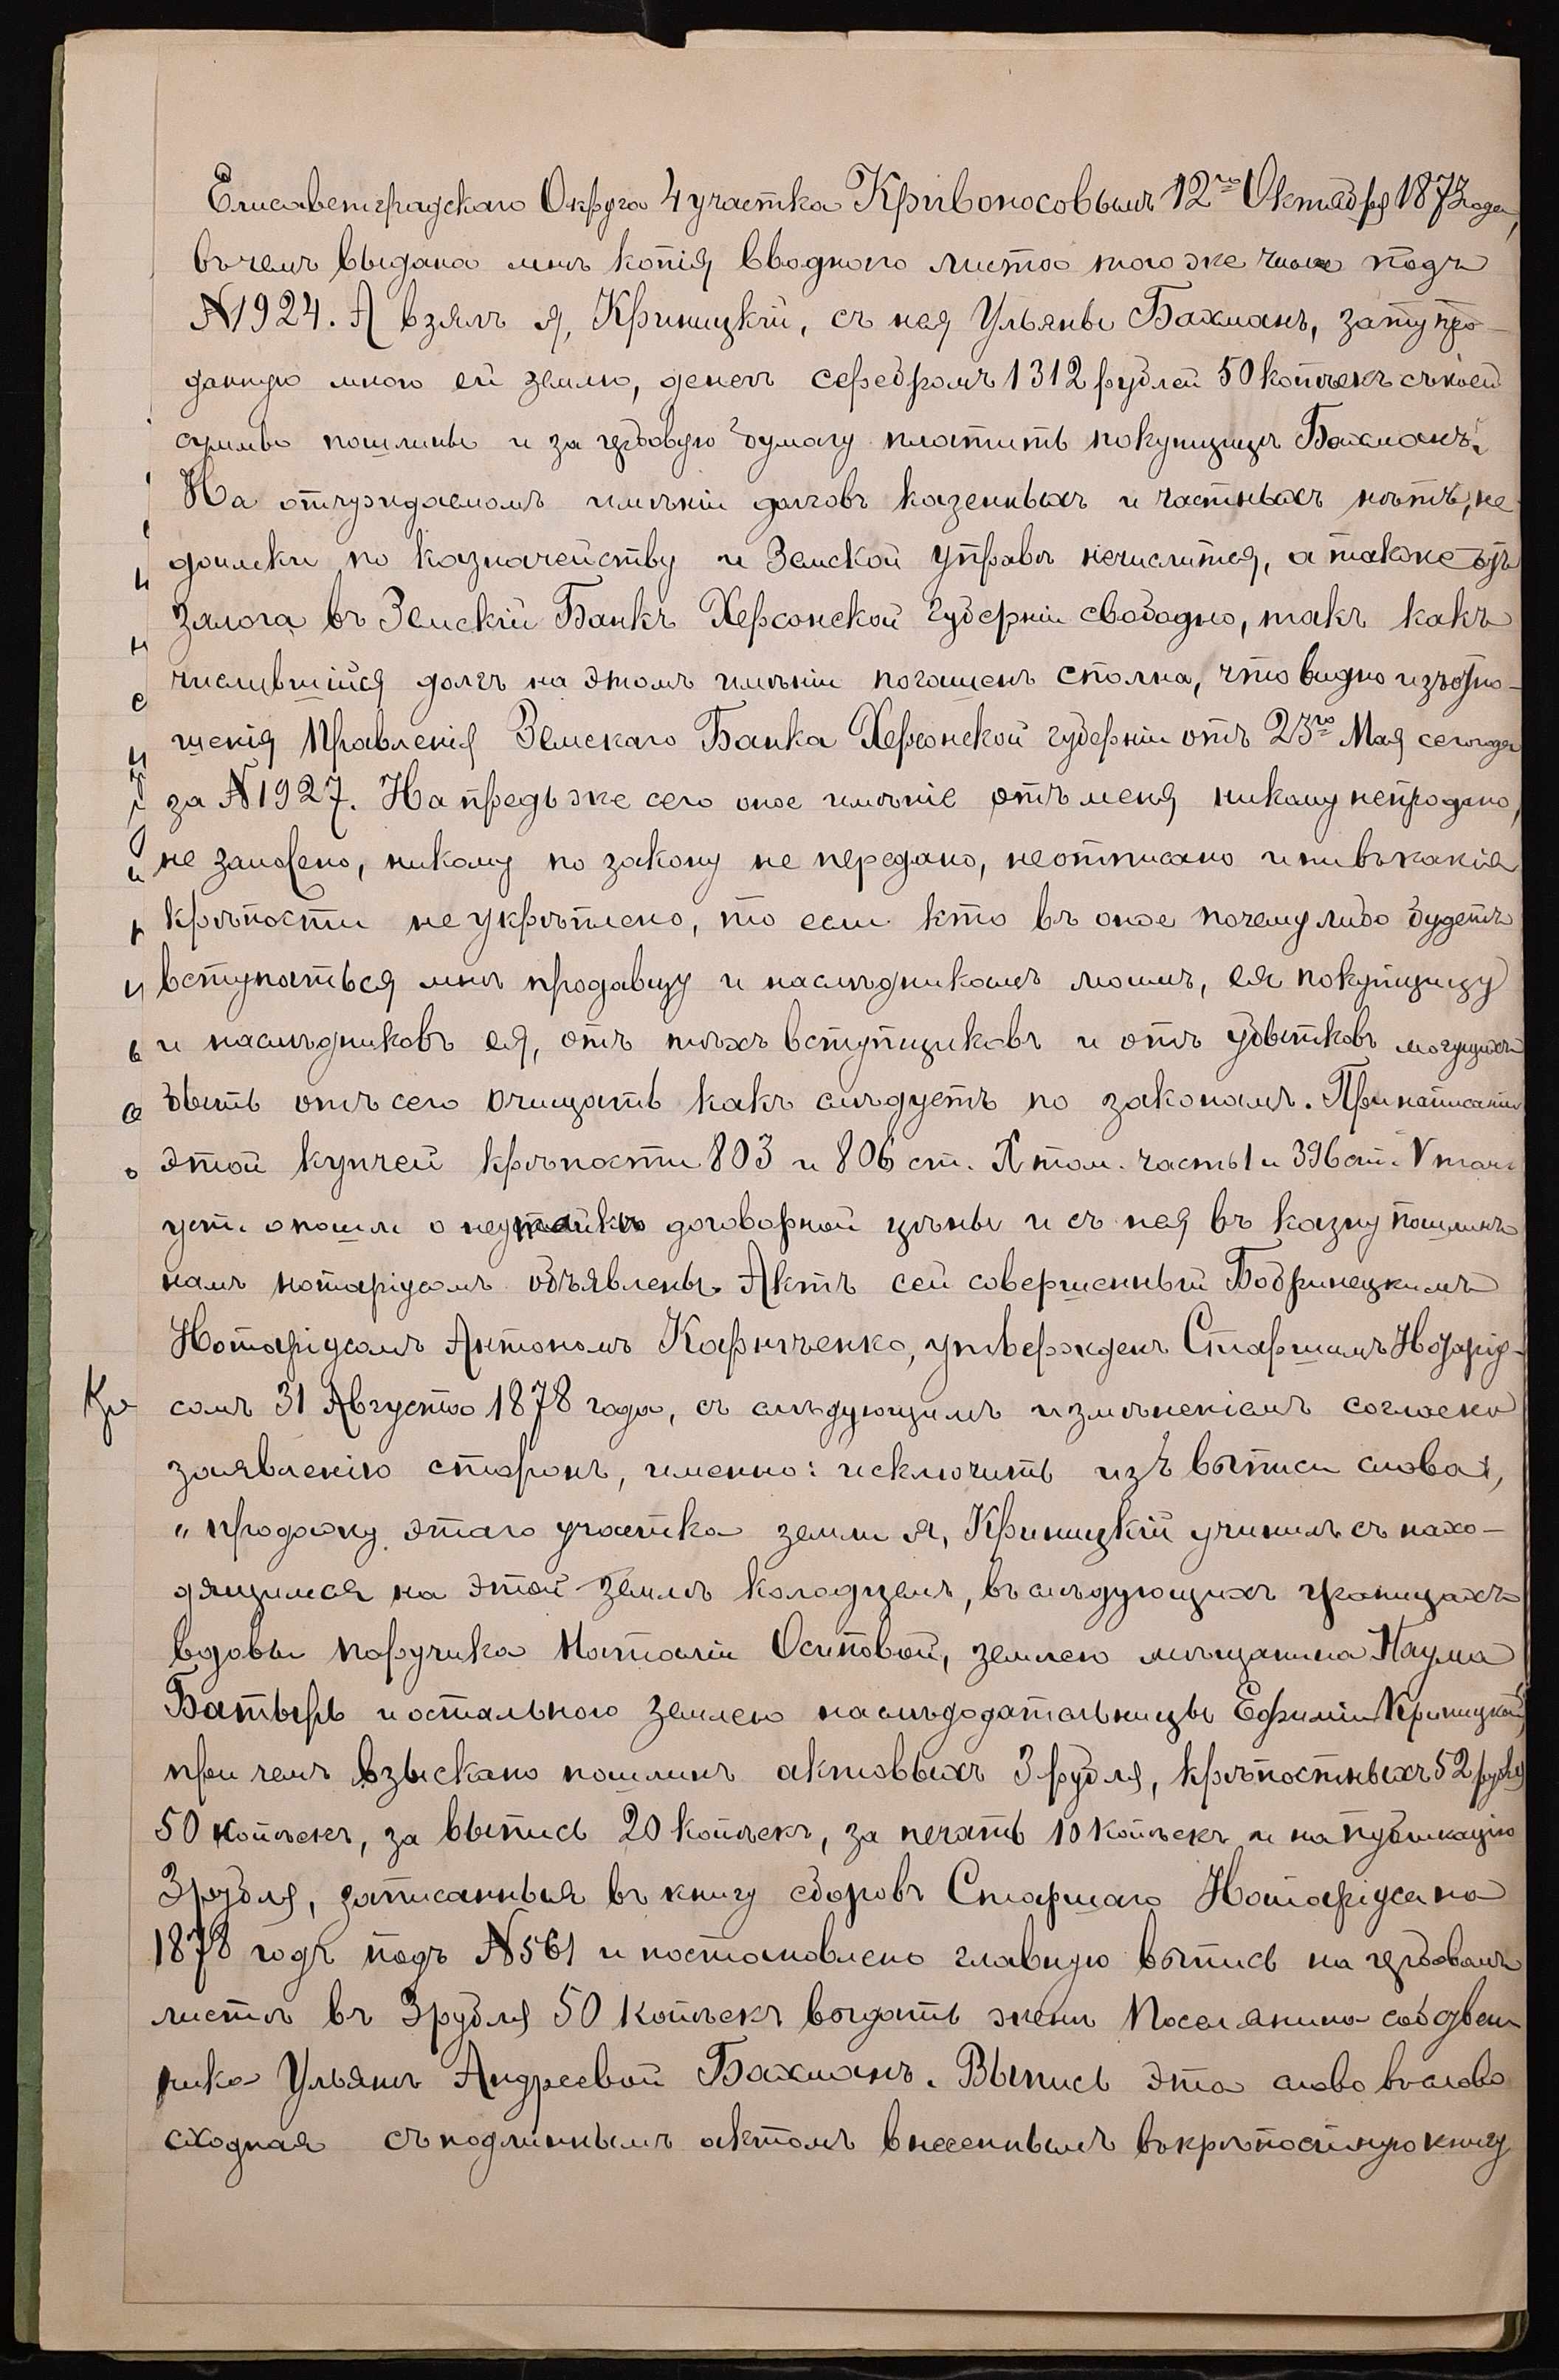 Елисаветградскаго Округа 4 участка Кривоносовымъ 12го Октября 187 года,
въ чемъ выдана мнѣ копія вводнаго листа того же числа подъ
№ 1924. А взялъ я, Криницкій, съ нея Ульяны Бахманъ, за ту про-
данную мною ей землю, денегъ серебромъ 1312 рублей 50 копѣекъ съ коей
суммы пошлины и за гербовую бумагу платитъ покупщица Бахманъ.
На отчуждаемомъ имѣніи долговъ казенныхъ и частныхъ нѣтъ, не
доимки по казначейству и Земской Управѣ нечислится, а также отъ
залога въ Земскій Банкъ Херсонской Губерніи свободно, такъ какъ
числившійся долгъ на этомъ имѣніи погашенъ сполна, что видно изъ отно-
шенія Правленія Земскаго Банка Херсонской губерніи отъ 23го Мая сего года
за № 1927. Напредь же сего оное имѣніе отъ меня никому непродано,
не заложено, никому по закону не передано, неотписано и ни въ какія
крѣпости не укрѣплено, то если кто въ оное почему либо будетъ
вступаться мнѣ продавцу и наслѣдникамъ моимъ, ея покупщицу
и наслѣдниковъ ея, отъ тѣхъ вступщиковъ и отъ убытковъ могущихъ
быть отъ сего очищать какъ слѣдуетъ по законамъ. При написаніи
этой купчей крѣпости 803 и 806 ст. X том. часть 1 и 396 ст. V тома
уст. о пошл. о неутайкѣ договорной цѣны и съ нея въ казну пошлинъ
намъ нотаріусомъ объявлены. Актъ сей совершенный Бобринецкимъ
Нотаріусомъ Антономъ Карпченко, утвержденъ Старшимъ Нотаріу-
сомъ 31 Августа 1878 года, съ слѣдующимъ измѣненіемъ согласно
заявленію сторонъ, именно: исключить изъ выписи слова,
„продажу этаго участка земли я, Криницкій учинилъ съ нахо-
дящимся на этой землѣ колодцемъ, въ слѣдующихъ границахъ
вдовы поручика Наталіи Осиповой, землею мѣщанина Наума
Батырь и остального землею наслѣдодательницы Ефиміи Криницкой,
при чемъ взыскано пошлинъ актовыхъ 3 рубля, крѣпостныхъ 52 рубля
50 копѣекъ, за выпись 20 копѣекъ, за печать 10 копѣекъ и на публикацію
3 рубля, записанныя въ книгу сборовъ Старшаго Нотаріуса на
1878 годъ подъ № 561 и постановлено главную выпись на гербовомъ
листѣ въ 3 рубля 50 копѣекъ выдать женѣ Поселянина собствен
ника Ульянѣ Андреевой Бахманъ. Выпись эта слово въ слово
сходная съ подлиннымъ актомъ внесеннымъ въ крѣпостную книгу